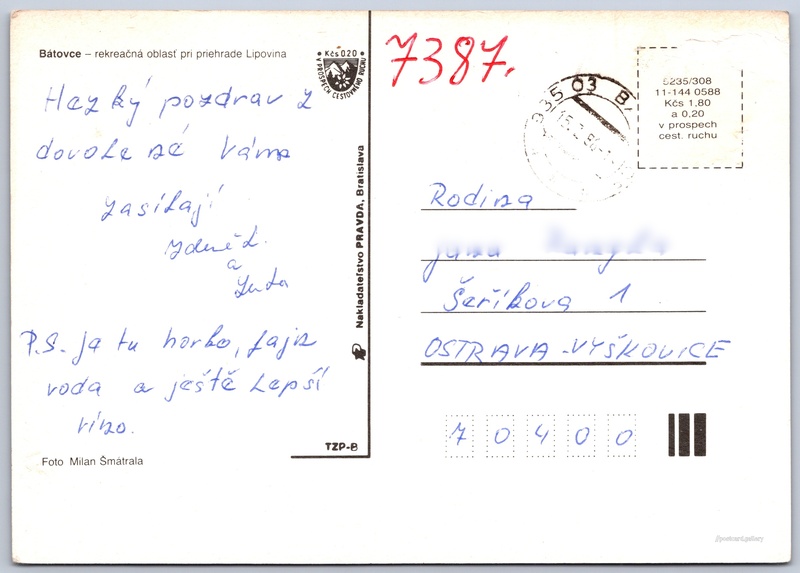 Bátovce – rekreačná oblasť pri priehrade Lipovina
Kčs 020
V PROSPECH CESTOVNÉHO RUCHU
Hezký pozdrav z
dovolené Vám
zasílají
Zdeněk
a
Lenta
P.S. ja tu horko, fajn
voda a ještě lepší
víno.
Foto Milan Šmátrala
TZP-B
Nakladateľstvo PRAVDA, Bratislava
7387.
935 03 B
S235/308
11-144 0588
Kčs 1,80
a 0,20
v prospech
cest. ruchu
Rodina
Jana
Šeříkova 1
OSTRAVA-VYŠKOVICE
70400
//postcard.gallery